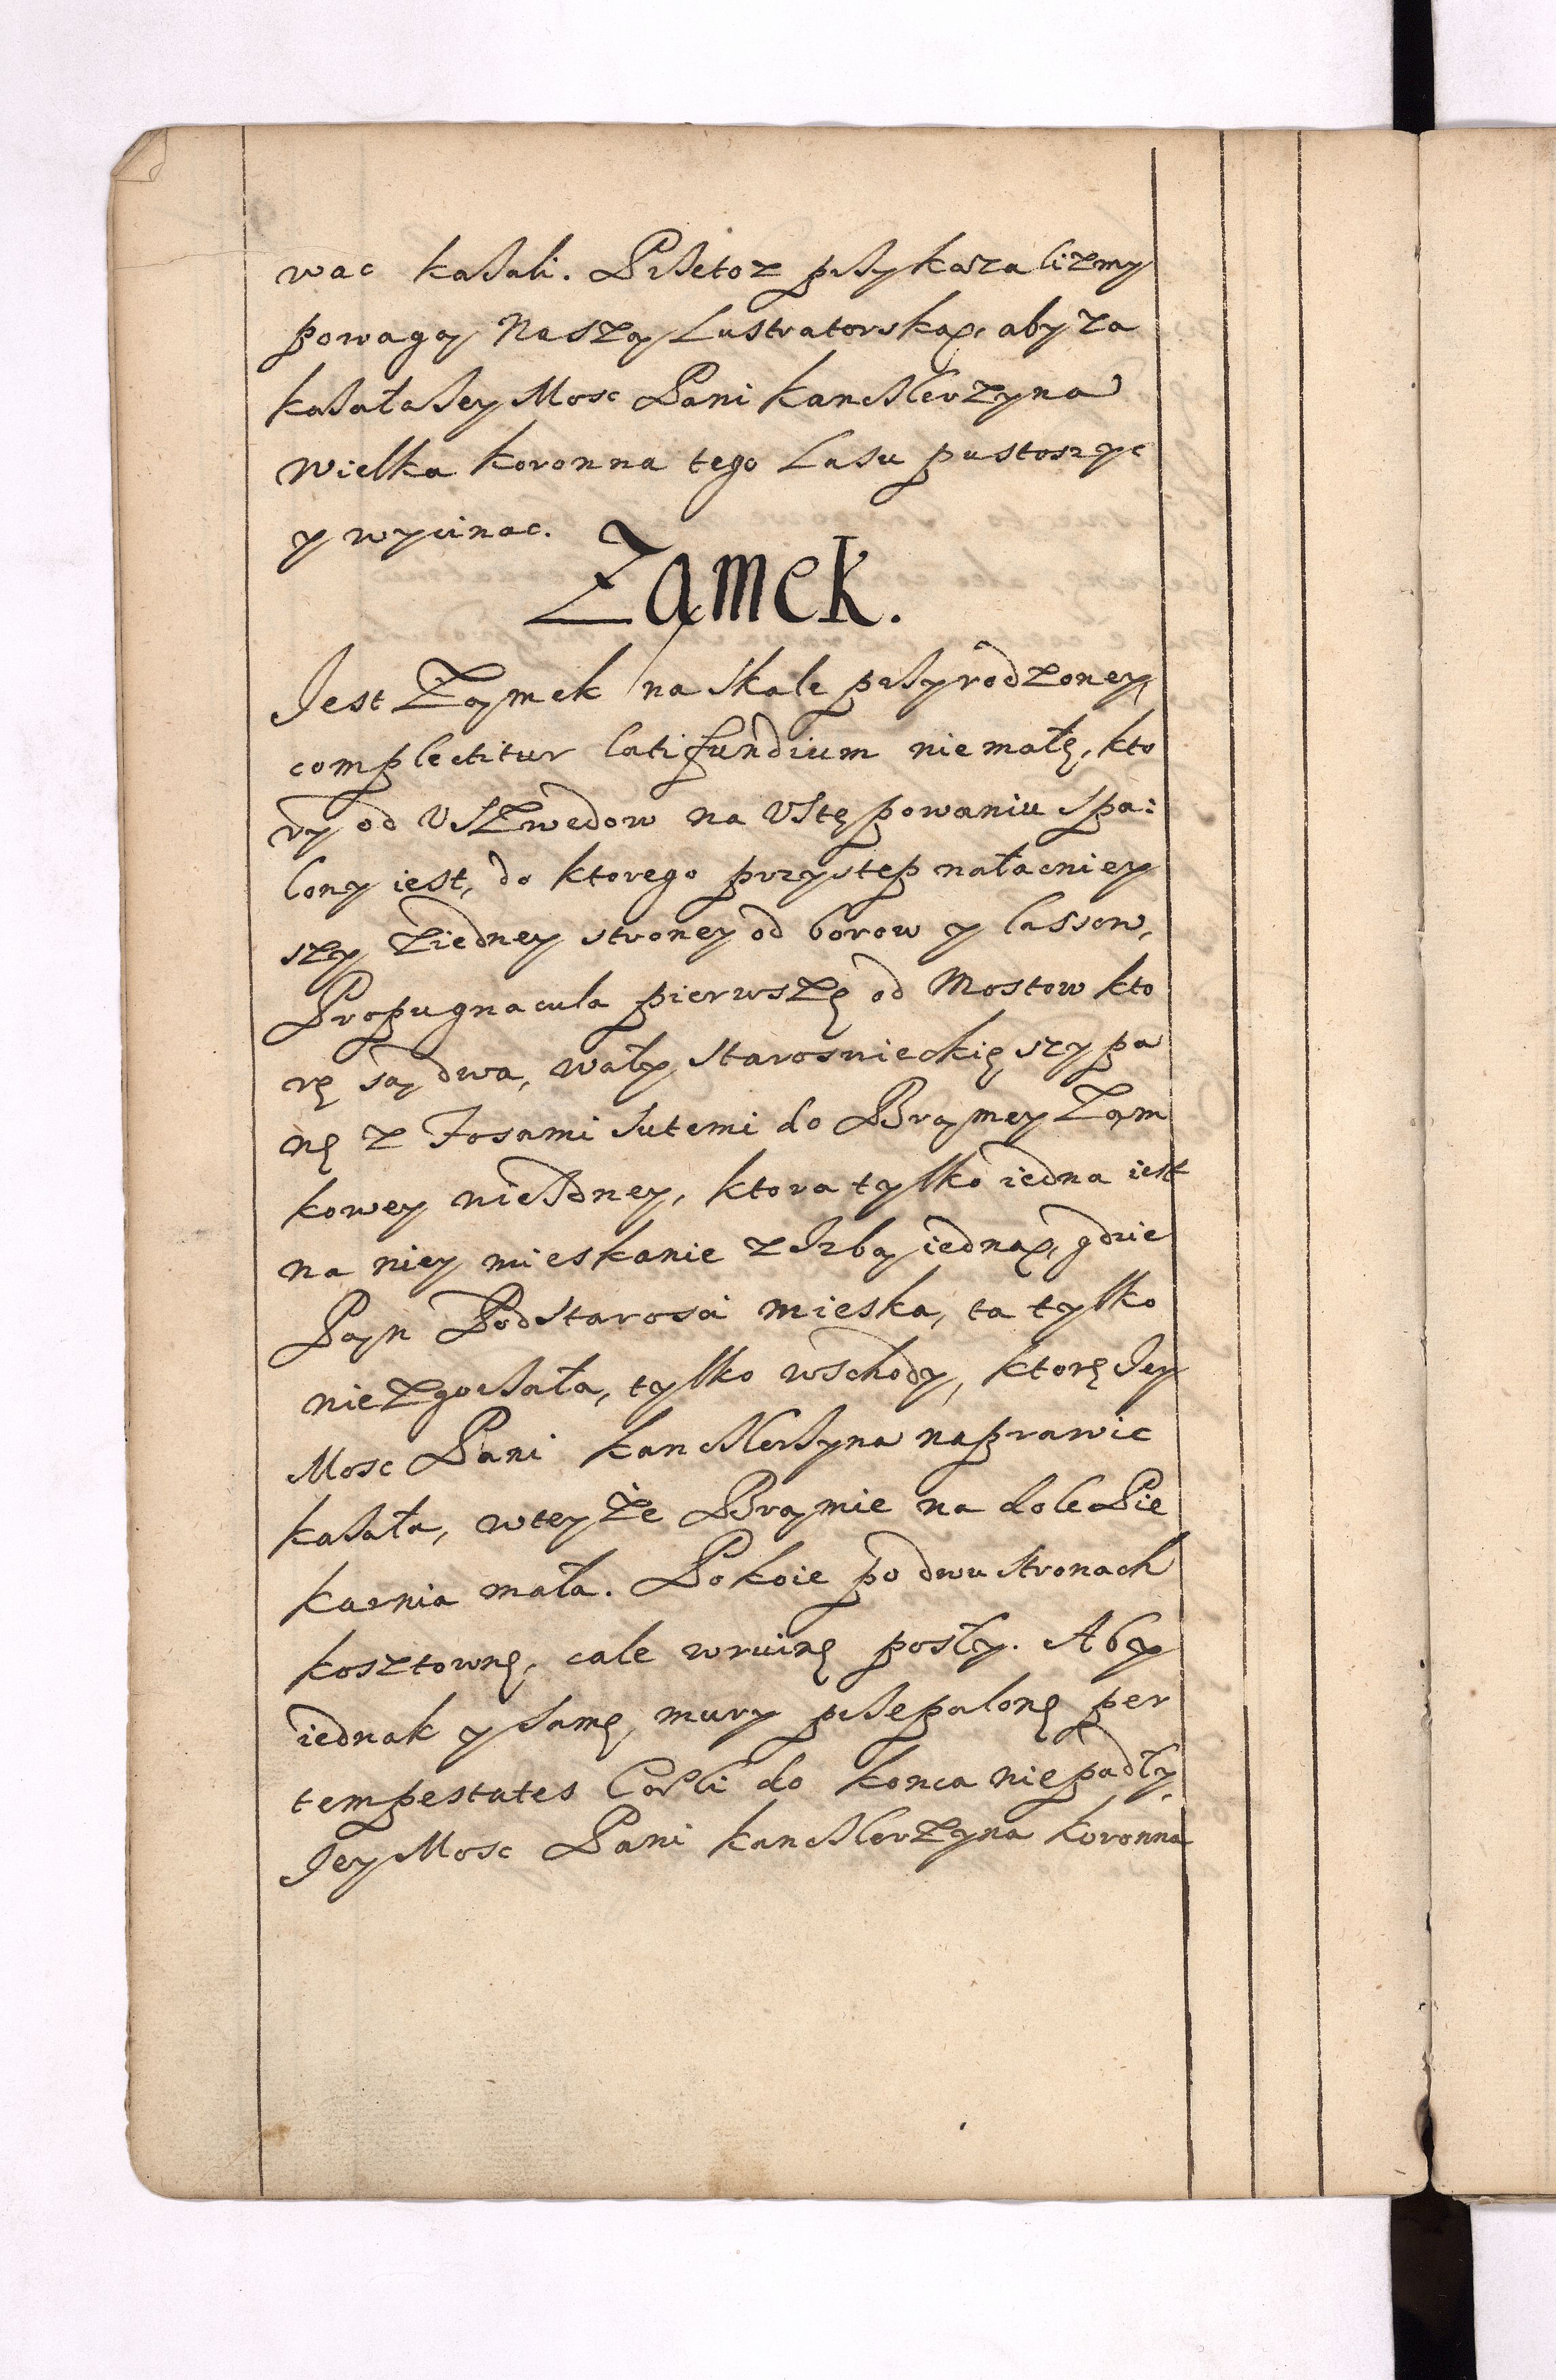 wac kazali. Przetoz przykazalizmy
powagą Naszą Lustratorską, aby za
kazała Jey Mosc Pani Kanclerzyna
Wielka koronna tego Lasu pustoszyc
y wycinac.
Zamek.
Jest Ząmek na skale przyrodzoney,
complectitur latifundium niemałę, kto
ry od Uszwedow na Ustępowaniu spa:
lony iest, do ktorego przystęp nałacniey
szy ziedney stroney od borow y lassow,
Propugnacula pierwszę od Mostow kto
rę są dwa, wały Staroswieckię szypa
nę z Fosami sutemi do Brąmey Ząm
kowey niezdney, ktora tylko iedna iest
na niey mieskanie z Izbą iedną, gdzie
Pąn Podstarosci mieska, ta tylko
niezgorzała, tylko wschody, ktorę Jey
Mosc Pani kanclerzyna naprawic
kazała, wteyże Brąmie na dole Pie
karnia mała. Pokoie po dwu stronach
kosztownę, cale wruinę poszły. Aby
iednak y samę mury przepalonę per
tempestates Coeli do konca niepadły,
Jey Mosc Pani kanclerzyna koronna